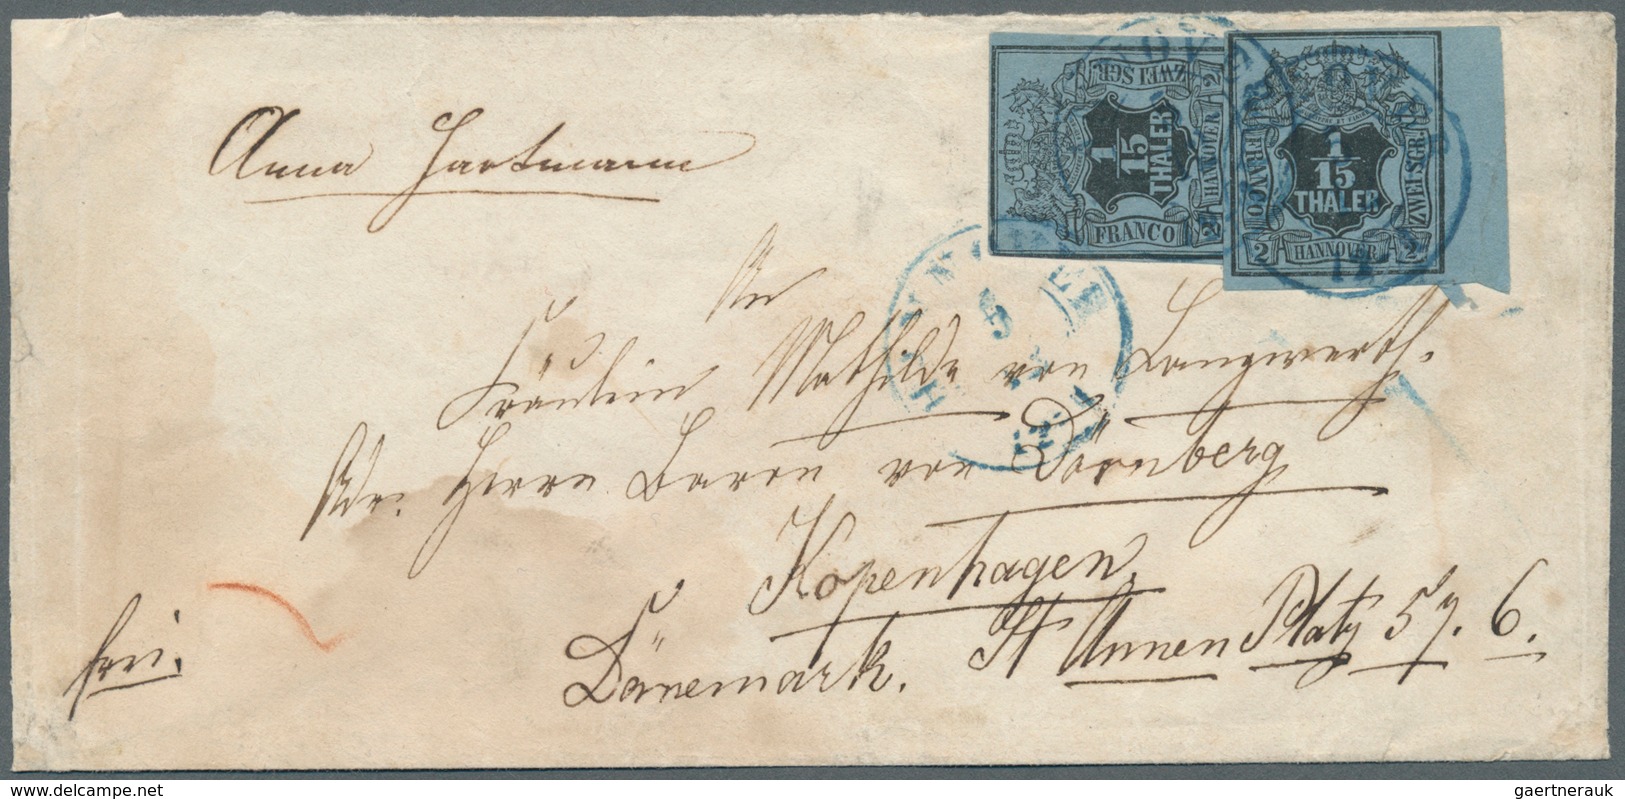 Anna Hartmann
ZWEI SGR. 2
1/15 THALER
HANNOVER
FRANCO 2
1/15
THALER
FRANCO
ZWEI SGR.
2 HANNOVER 2
HANNOVER
An
Fräulein Mathilde von Langwerth.
Adr. Herrn Baron von Dörnberg
Kopenhagen,
Dänemark. St Annen Platz 57. 6.
frei.
delcampe.net
gaertnerauk